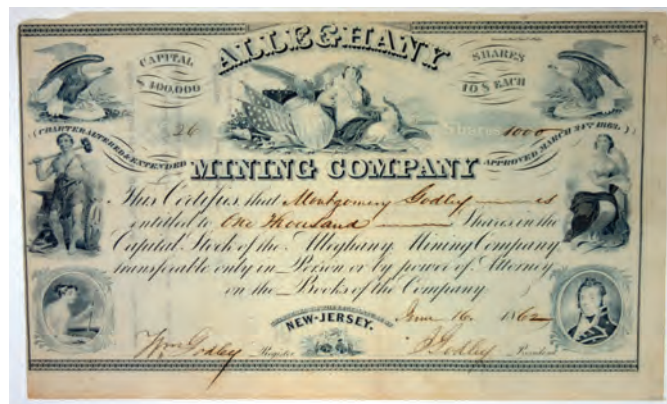 ALLEGHANY
CAPITAL
$400,000
SHARES
10 $ EACH
26
Shares 1000
(CHARTER ALTERED & EXTENDED
APPROVED MARCH 24TH 1862.)
MINING COMPANY
This Certifies that Montgomery Godley is
entitled to One Thousand Shares in the
Capital Stock of the Alleghany Mining Company
transferable only in Person or by power of Attorney
on the Books of the Company
NEW-JERSEY.
June 16. 1862
Wm Godley Register
J Godley President